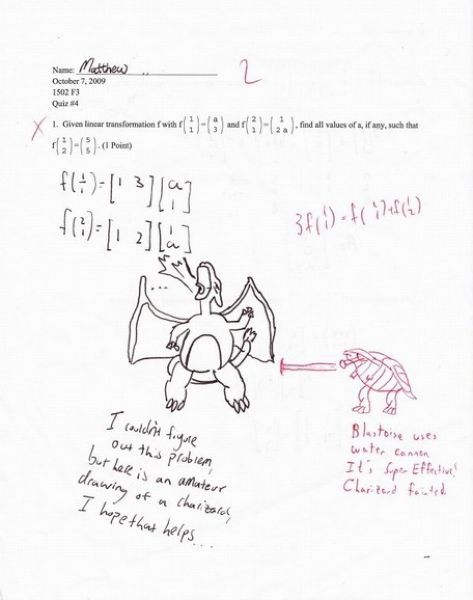 Name: Matthew
2
October 7, 2009
1502 F3
Quiz #4
X 1. Given linear transformation f with f(1 1)=(a 3) and f(2 1)=(1 2a), find all values of a, if any, such that
f(1 2)=(5 5). (1 Point)
f(1 1)=[1 3][a 1]
f(2 1)=[1 2][1 a]
3f(1 1)=f(2 1)+f(1 2)
...
I couldn't figure
out this problem,
but here is an amateur
drawing of a charizard,
I hope that helps...
Blastoise uses
water cannon
It's Super Effective!
Charizard fainted.